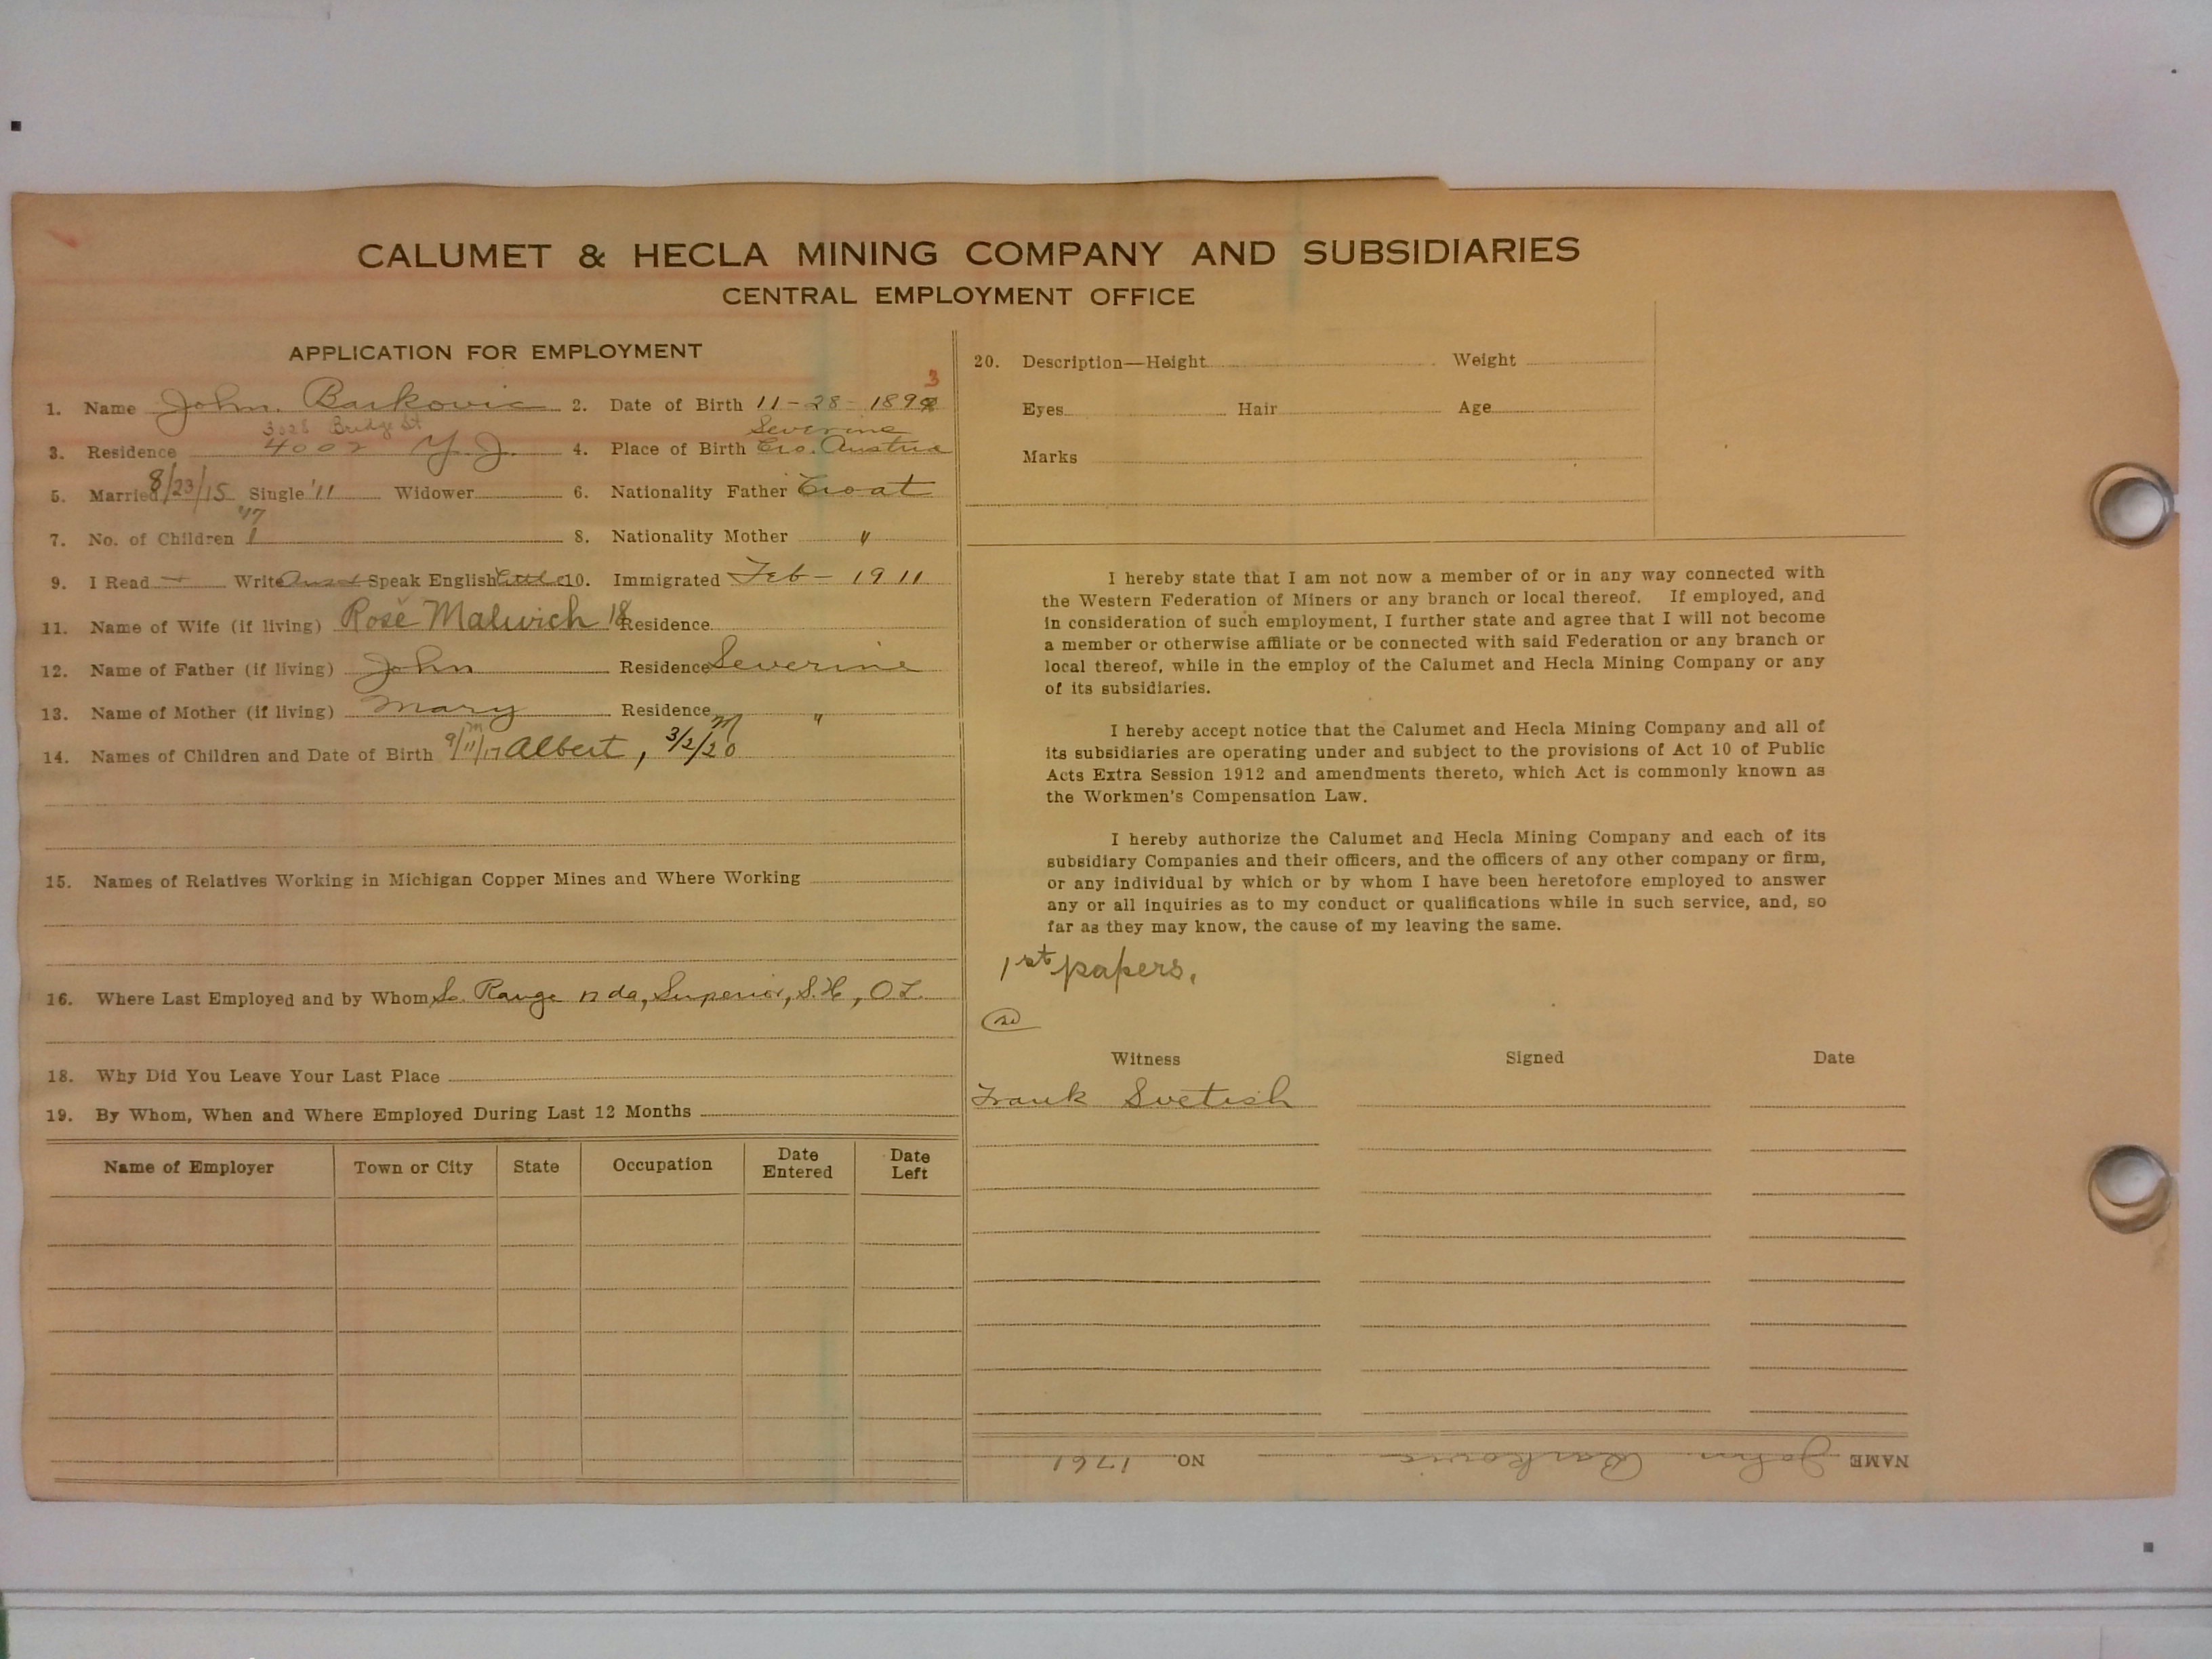 CALUMET & HECLA MINING COMPANY AND SUBSIDIARIES
CENTRAL EMPLOYMENT OFFICE
APPLICATION FOR EMPLOYMENT
3
1. Name John Barkovic 2. Date of Birth 11-28-189
3028 Bridge St Severine
3. Residence 4002 Y.J. 4. Place of Birth Cro. Austria
5. Married 8/23/15 Single '11 Widower 6. Nationality Father Croat
'17
7. No. of Children 1 8. Nationality Mother "
9. I Read Write Speak English Little 10. Immigrated Feb - 1911
11. Name of Wife (if living) Rose Malwich 18 Residence
12. Name of Father (if living) John Residence Severine
13. Name of Mother (if living) Mary Residence "
m m
14. Names of Children and Date of Birth 9/11/17 Albert, 3/2/20
15. Names of Relatives Working in Michigan Copper Mines and Where Working
16. Where Last Employed and by Whom So. Range n da, Superior, S.H., O.L.
18. Why Did You Leave Your Last Place
19. By Whom, When and Where Employed During Last 12 Months
Name of Employer Town or City State Occupation Date Entered Date Left
20. Description—Height Weight
Eyes Hair Age
Marks
I hereby state that I am not now a member of or in any way connected with
the Western Federation of Miners or any branch or local thereof. If employed, and
in consideration of such employment, I further state and agree that I will not become
a member or otherwise affiliate or be connected with said Federation or any branch or
local thereof, while in the employ of the Calumet and Hecla Mining Company or any
of its subsidiaries.
I hereby accept notice that the Calumet and Hecla Mining Company and all of
its subsidiaries are operating under and subject to the provisions of Act 10 of Public
Acts Extra Session 1912 and amendments thereto, which Act is commonly known as
the Workmen's Compensation Law.
I hereby authorize the Calumet and Hecla Mining Company and each of its
subsidiary Companies and their officers, and the officers of any other company or firm,
or any individual by which or by whom I have been heretofore employed to answer
any or all inquiries as to my conduct or qualifications while in such service, and, so
far as they may know, the cause of my leaving the same.
1st papers.
Witness Signed Date
Frank Svetish
NAME John Barkovic NO. 1761